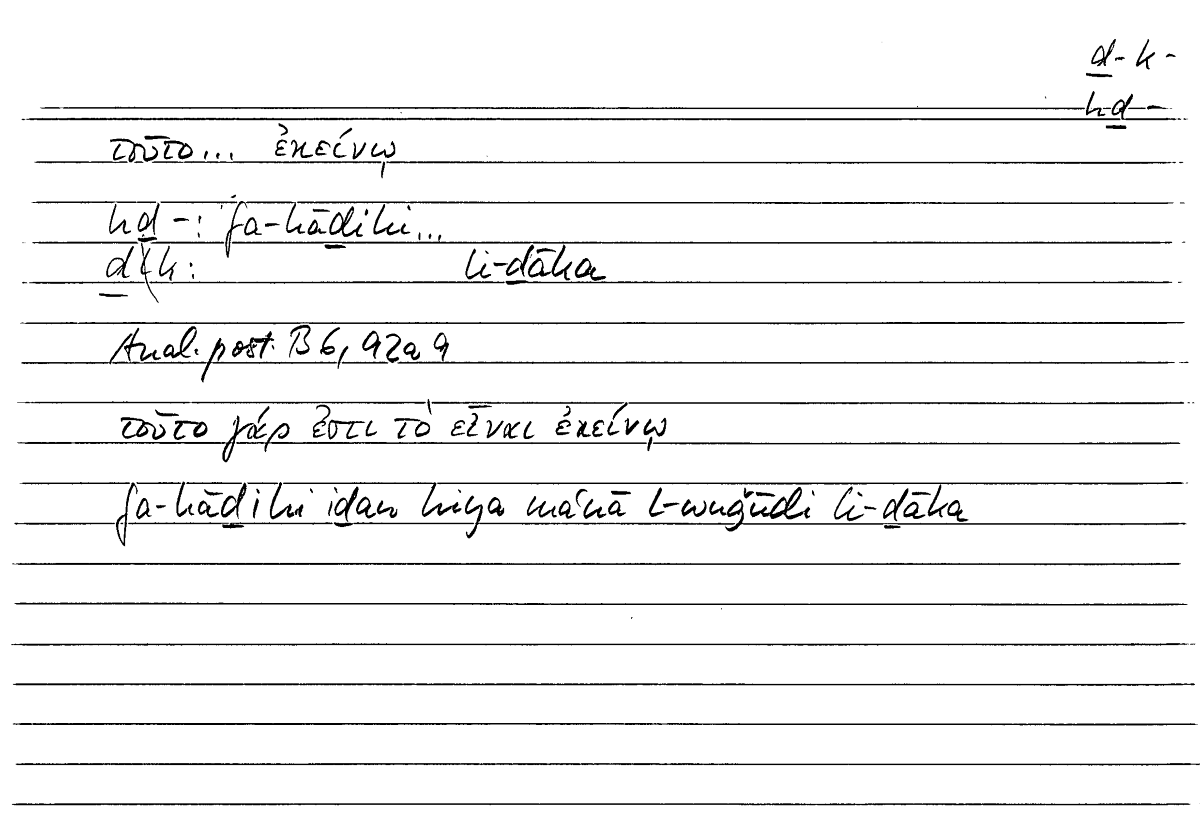 ḏ-k-
hḏ-
τοῦτο... ἐκείνῳ
hḏ-: fa-hāḏihi...
ḏ(k: li-ḏāka
Anal. post. B 6, 92a 9
τοῦτο γάρ ἐστι τὸ εἶναι ἐκείνῳ
fa-hāḏihi iḏan hiya maʿnā l-wuǧūdi li-ḏāka